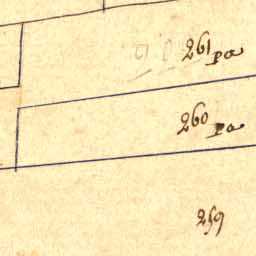 261
pa
260
pa
259